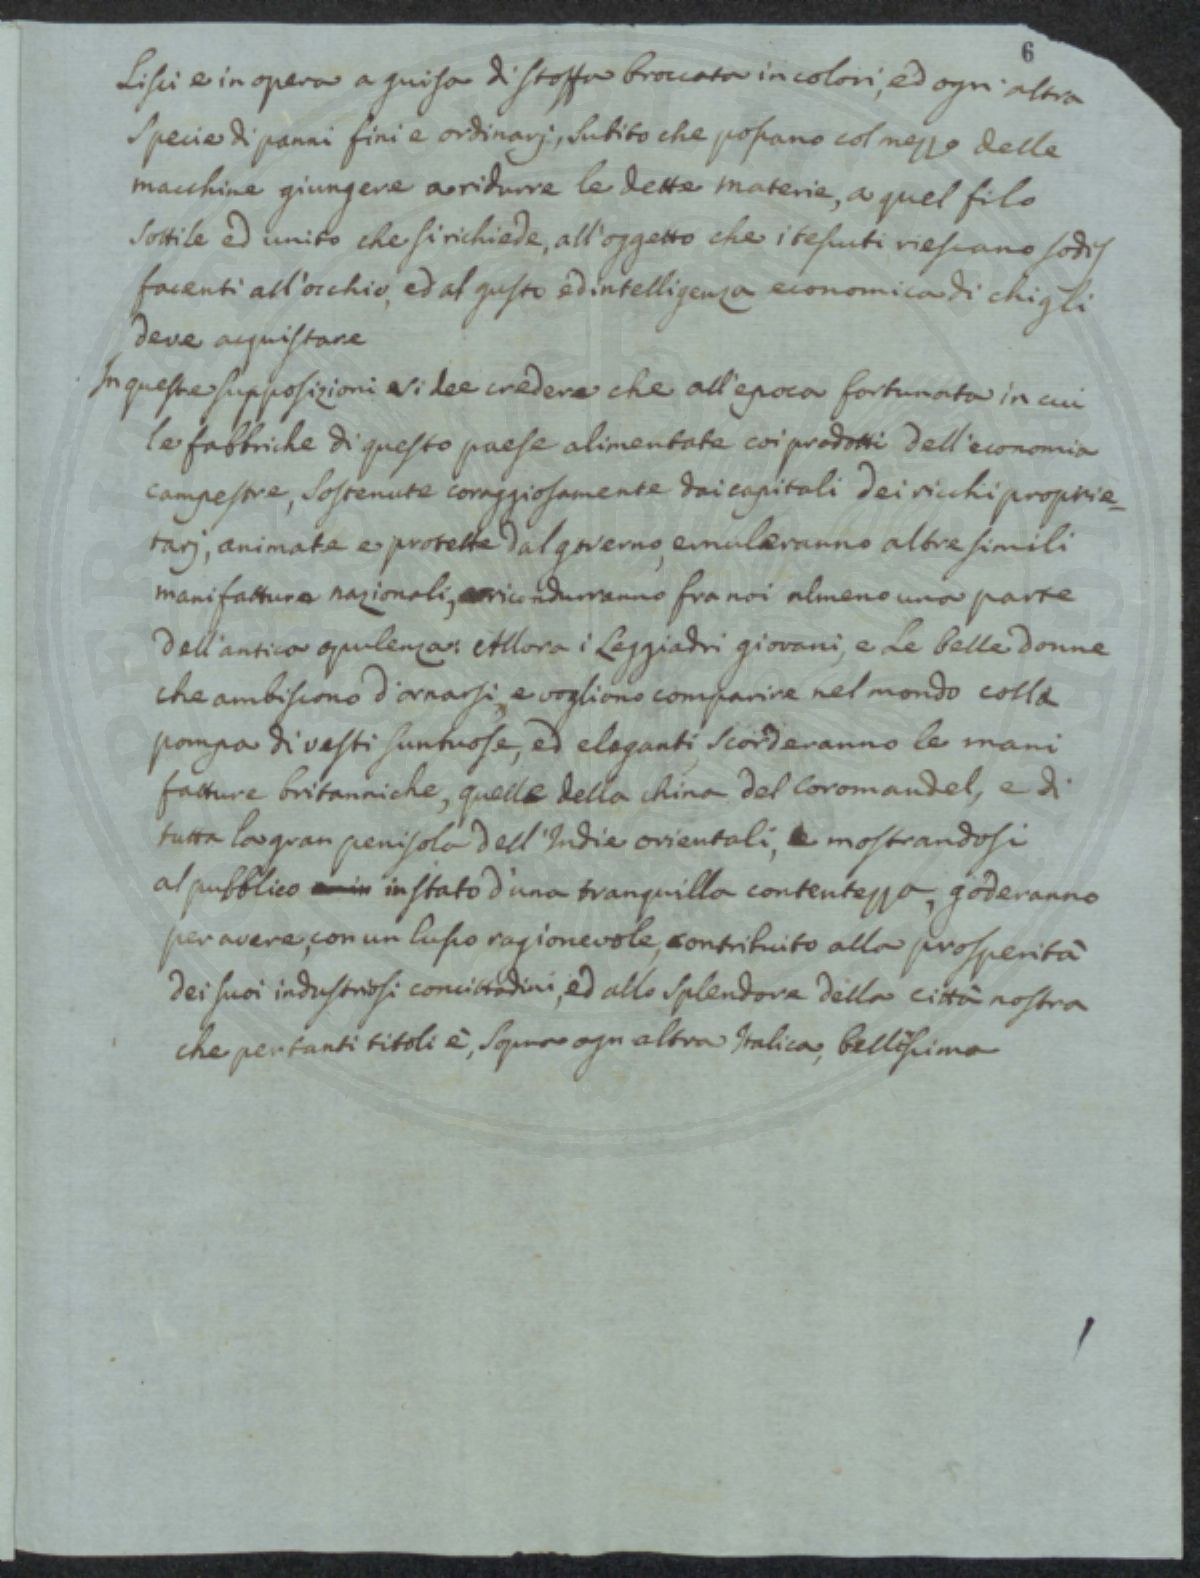 6
Lisci e in opera a guisa di stoffa broccata in colori, ed ogni altra
specie di panni fini e ordinarj, subito che possano col mezzo delle
macchine giungere a ridurre le dette materie, a quel filo
sottile ed unito che si richiede, all'oggetto che i tessuti riescano sodis
facenti all'occhio, ed al gusto ed intelligenza economica di chi gli
deve acquistare
In queste supposizioni si dee credere che all'epoca fortunata in cui
le fabbriche di questo paese alimentate coi prodotti dell'economia
campestre, sostenute coraggiosamente dai capitali dei ricchi proprie-
tarj, animate e protette dal governo, emuleranno altre simili
manifatture nazionali, ricondurranno fra noi almeno una parte
dell'antica opulenza: Allora i Leggiadri giovani, e Le belle donne
che ambiscono d'ornarsi, e vogliono comparire nel mondo colla
pompa di vesti suntuose, ed eleganti, scorderanno le mani
fatture britanniche, quelle della china del Coromandel, e di
tutta la gran penisola dell'Indie orientali, e mostrandosi
al pubblico in stato d'una tranquilla contentezza, goderanno
per avere, con un lusso ragionevole, contribuito alla prosperità
dei suoi industriosi concittadini, ed allo splendore della città nostra
che per tanti titoli è, sopra ogn altra Italica, bellissima